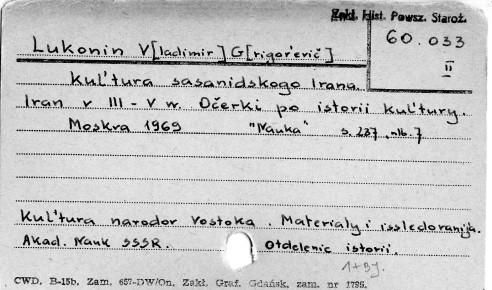 Zakł. Hist. Powsz. Staroż.
60.033
II
Lukonin V[ladimir] G[rigor'evič]
Kul'tura sasanidskogo Irana.
Iran v III - V w. Očerki po istorii kul'tury.
Moskva 1969 "Nauka" s. 237, nlb. 7
Kul'tura narodov Vostoka. Materialy i issledovanija.
Akad. Nauk SSSR. Otdelenie istorii.
1+By.
CWD. B-15b. Zam. 657-DW/On. Zakł. Graf. Gdańsk, zam. nr 1795.